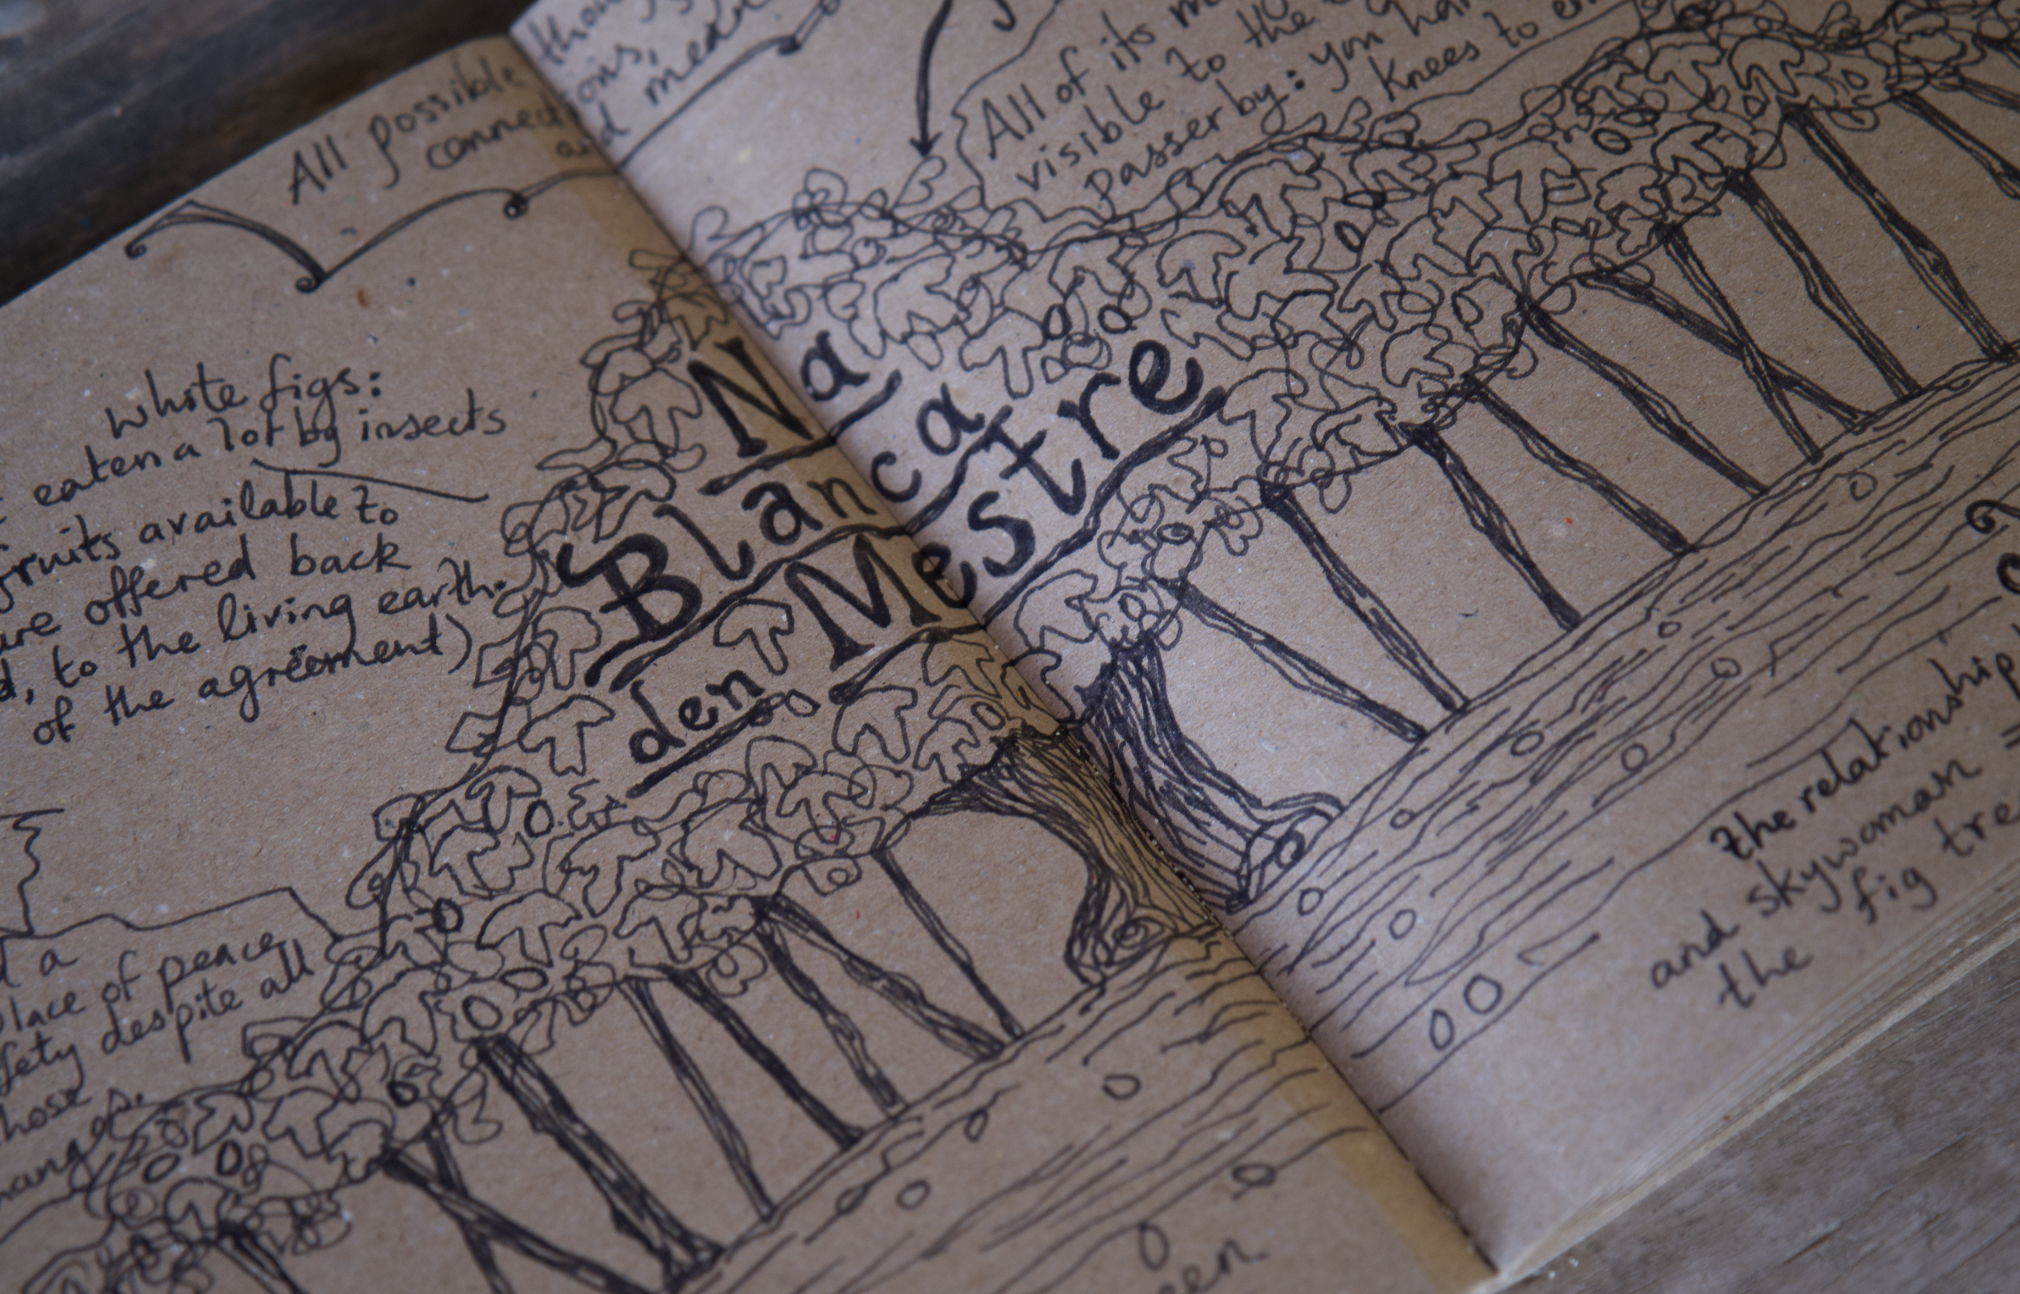 All possible
connections,
and mean
All of its m
visible to the
passerby: you ha
knees to en
white figs:
eaten a lot by insects
fruits available to
are offered back
d, to the living earth.
of the agreement)
Na
Blanca
den Mestre
d a
place of peace
fety despite all
those
changes.
the relationship
and skywoman =
the fig tree
een